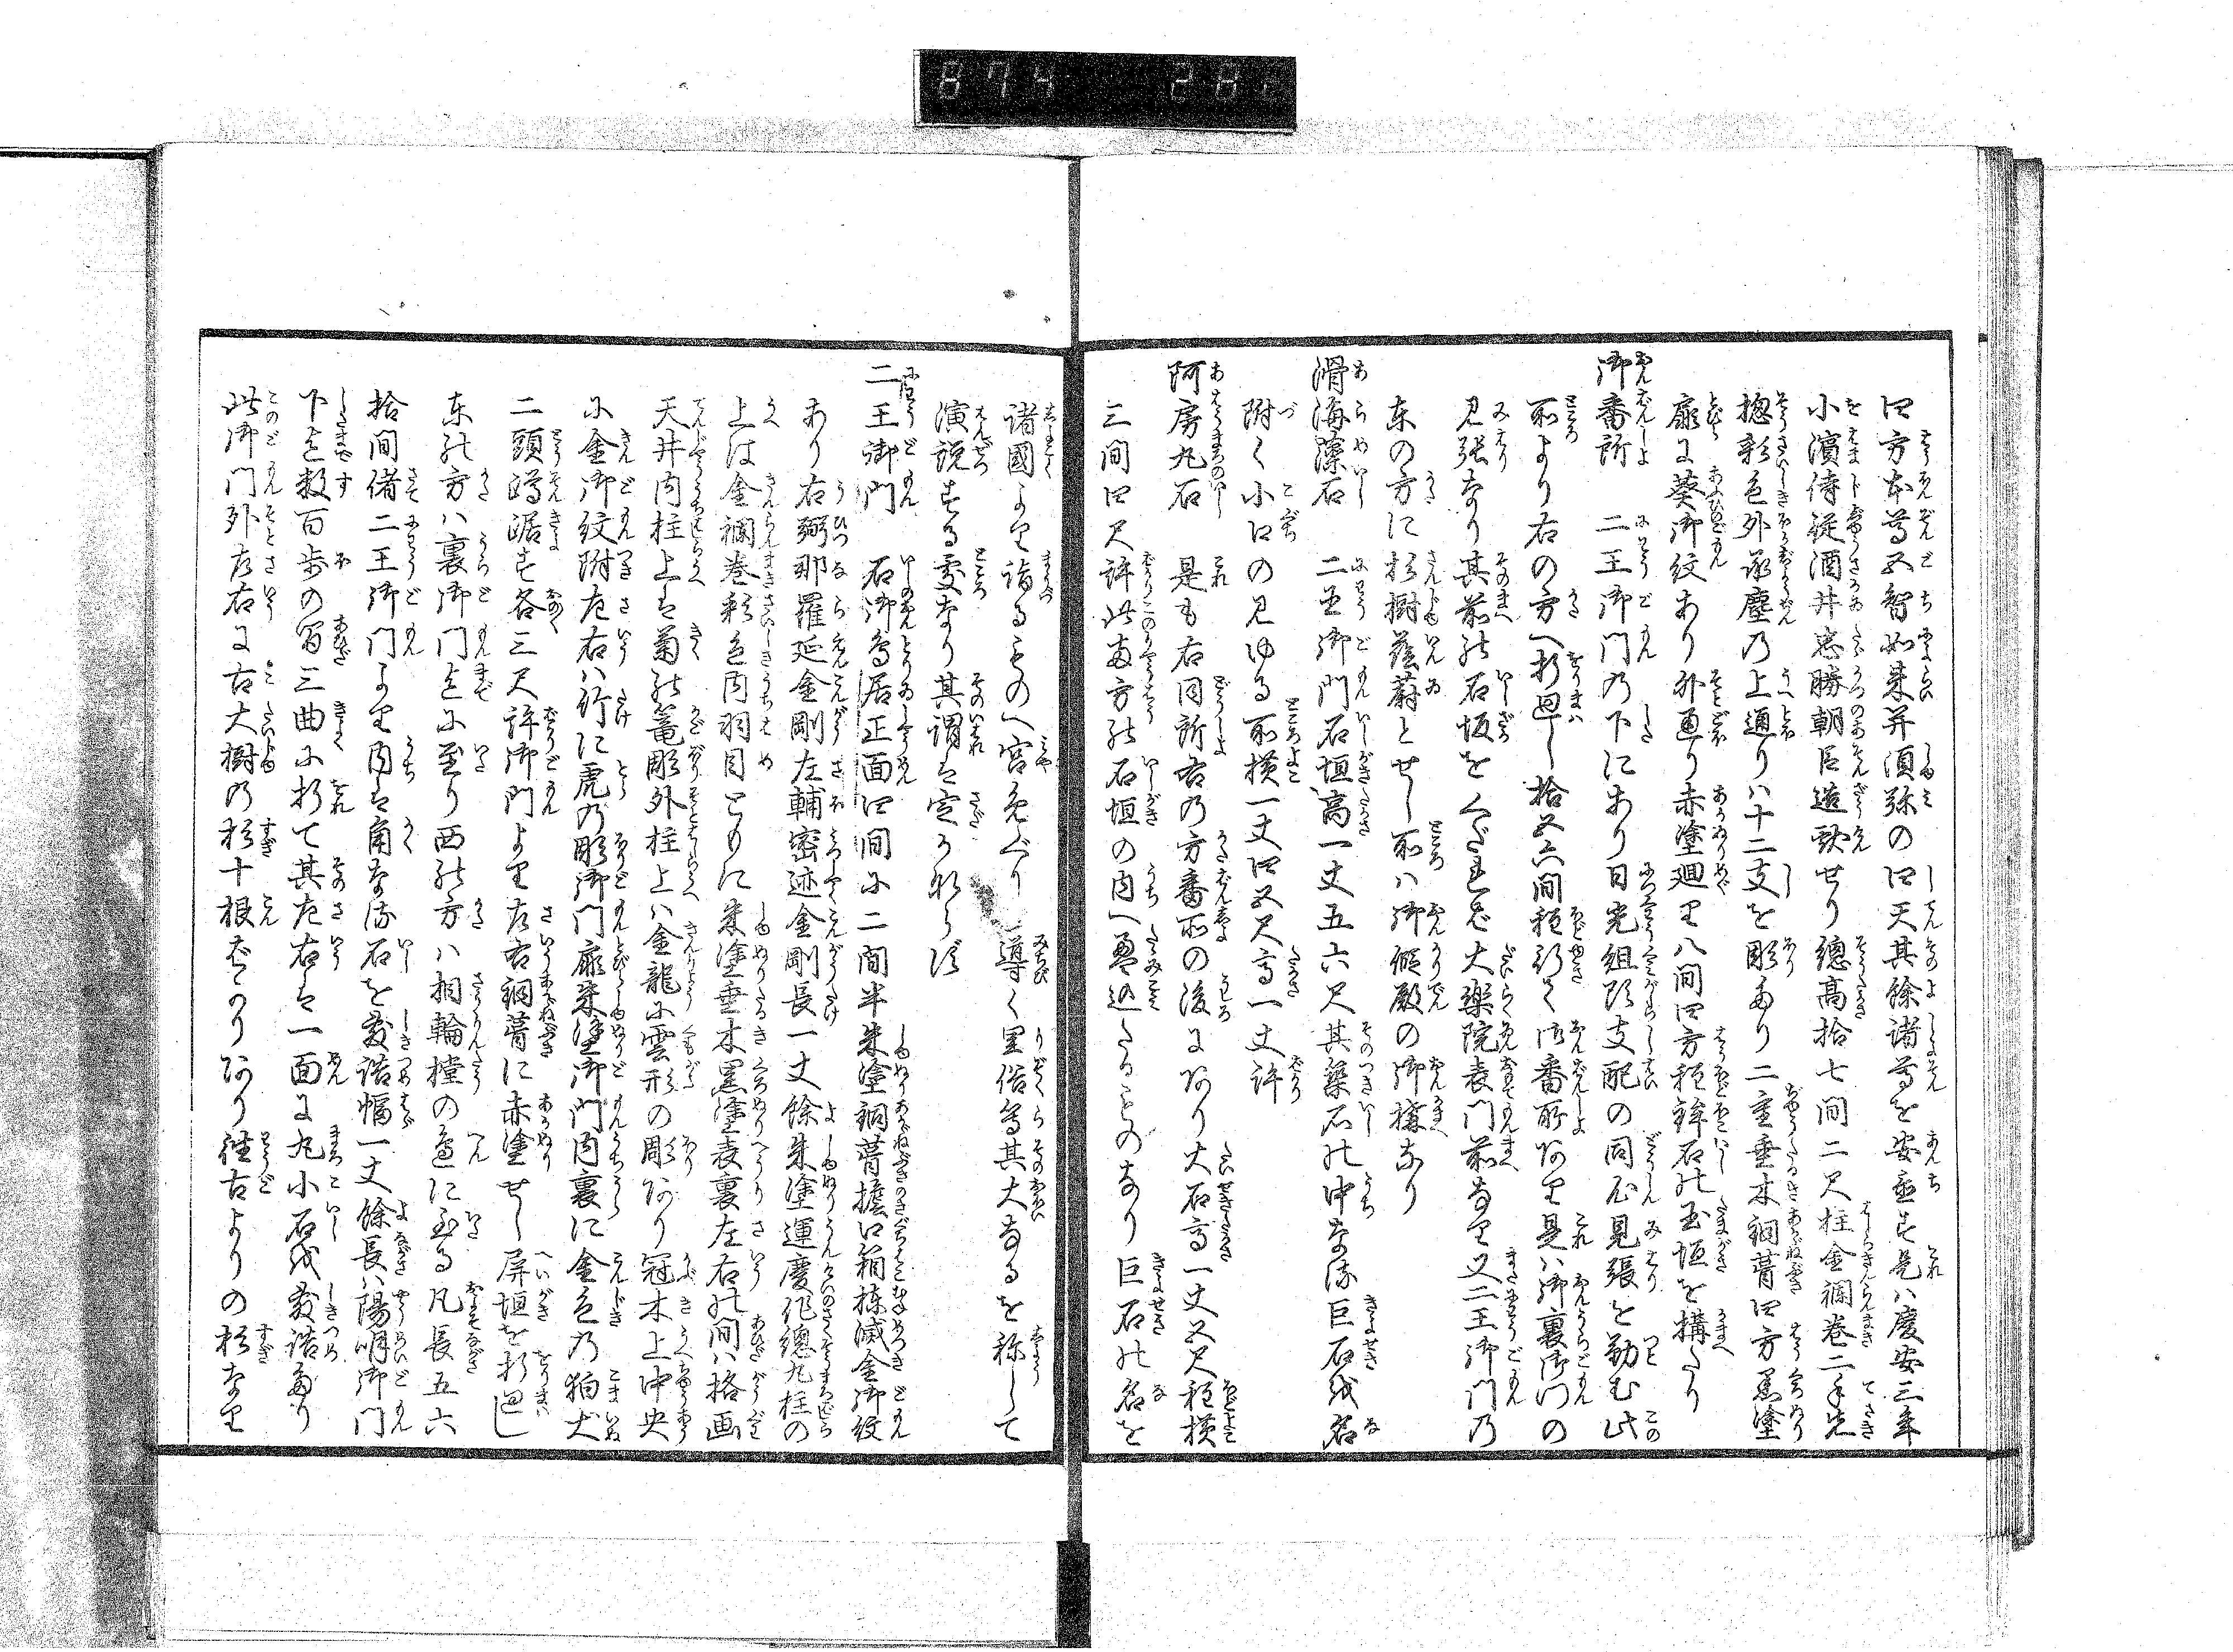 874 282
四方本尊五智如来并須弥の四天其餘諸尊を安置す是ハ慶安三年
小濱侍従酒井忠勝朝臣造献せり總高拾七間二尺柱金襴巻二手先
揔彩色外承塵乃上通りハ十二支を彫あり二重垂木銅葺四方黒塗
扉に葵御紋あり外通り赤塗廻り八間四方程鉾石の玉垣を搆たり
御番所 二王御門乃下にあり日光組頭支配の同心見張を勤む此
所より右の方へ折廻し拾五六間程行て御番所あり是ハ御裏御門の
見張なり其前の石坂をくだれば大樂院表門前なり又二王御門乃
东の方に杉樹蔭蔚とせし所ハ御假殿の御搆なり
滑海藻石 二王御門石垣高一丈五六尺其築石の中なる巨石を名
附く小口の見ゆる所横一丈四五尺高一丈許
阿房丸石 是も右同所右の方番所の後にあり大石高一丈五尺程横
三間四尺許此両方の石垣の内へ疊込たるものなり巨石の名を
諸國より詣るもの宮めぐり導く里俗等其大なるを称して
演説する處なり其謂は定かならず
二王御門 石御鳥居正面四間に二間半朱塗銅葺擔口箱棟滅金御紋
あり右弼那羅延金剛左輔密迹金剛長一丈餘朱塗運慶作總九柱の
上は金襴巻彩色内羽目ともに朱塗垂木黒塗表裏左右の間ハ格画
天井内柱上は菊の篭彫外柱上ハ金龍に雲形の彫あり冠木上中央
に金御紋附左右ハ竹に虎乃彫御門扉朱塗御門内裏に金色乃狛犬
二頭蹲踞す各三尺許御門より左右銅葺に赤塗せし屏垣を折廻し
东の方ハ裏御門迄に至り西の方ハ相輪橖の邉に至る凡長五六
拾間偖二王御門より内は角なる石を敷詰幅一丈餘長ハ陽明御門
下迄数百歩の間三曲に折て其左右は一面に丸小石を敷詰あり
此御門外左右に古大樹乃杉十根ばかりあり徃古よりの杉なり